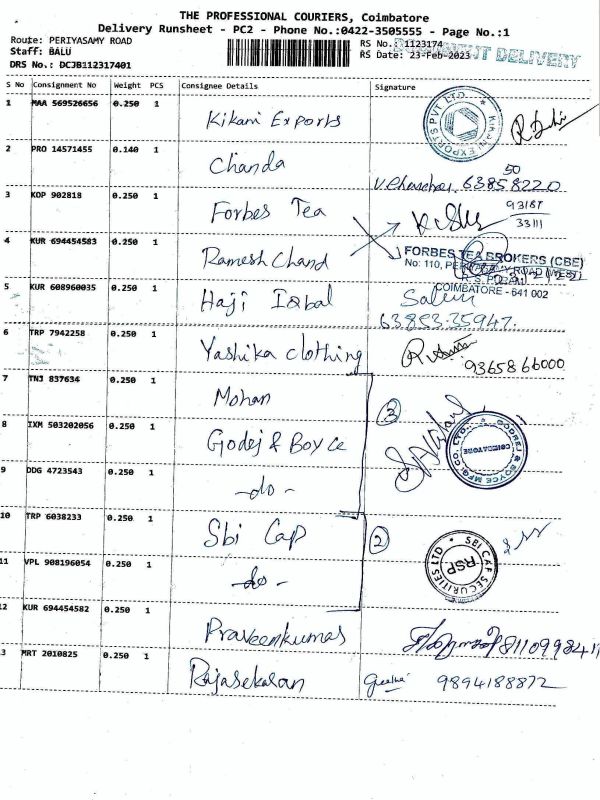 THE PROFESSIONAL COURIERS, Coimbatore
Delivery Runsheet - PC2 - Phone No.:0422-3505555 - Page No.:1
Route: PERIYASAMY ROAD
Staff: BALU
DRS No.: DCJB112317401
RS No.: 1123174
RS Date: 23-Feb-2023
DELIVERY
S No Consignment No Weight PCS Consignee Details Signature
1 MAA 569526656 0.250 1 Kikani Exports
KIKANI EXPORTS PVT LTD.
2 PRO 14571455 0.140 1 Chanda
50
63858220
3 KOP 902818 0.250 1 Forbes Tea
93187
33111
4 KUR 694454583 0.250 1 Ramesh Chand
FORBES TEA BROKERS (CBE)
No: 110, ROAD (WEST)
COIMBATORE - 641 002
5 KUR 608960035 0.250 1 Haji Iqbal
63853 35947.
6 TRP 7942258 0.250 1 Yashika clothing
9365866000
7 TNJ 837634 0.250 1 Mohan
8 IXM 503202056 0.250 1 Godej & Boyce
3
GODREJ & BOYCE MFG. CO. LTD.
COIMBATORE
9 DDG 4723543 0.250 1 -do-
10 TRP 6038233 0.250 1 Sbi Cap
2
SBI CAP SECURITIES LTD
RSP
11 VPL 908196054 0.250 1 -do-
12 KUR 694454582 0.250 1 Praveenkumar
13 MRT 2010825 0.250 1 Rajasekaran
9894188872